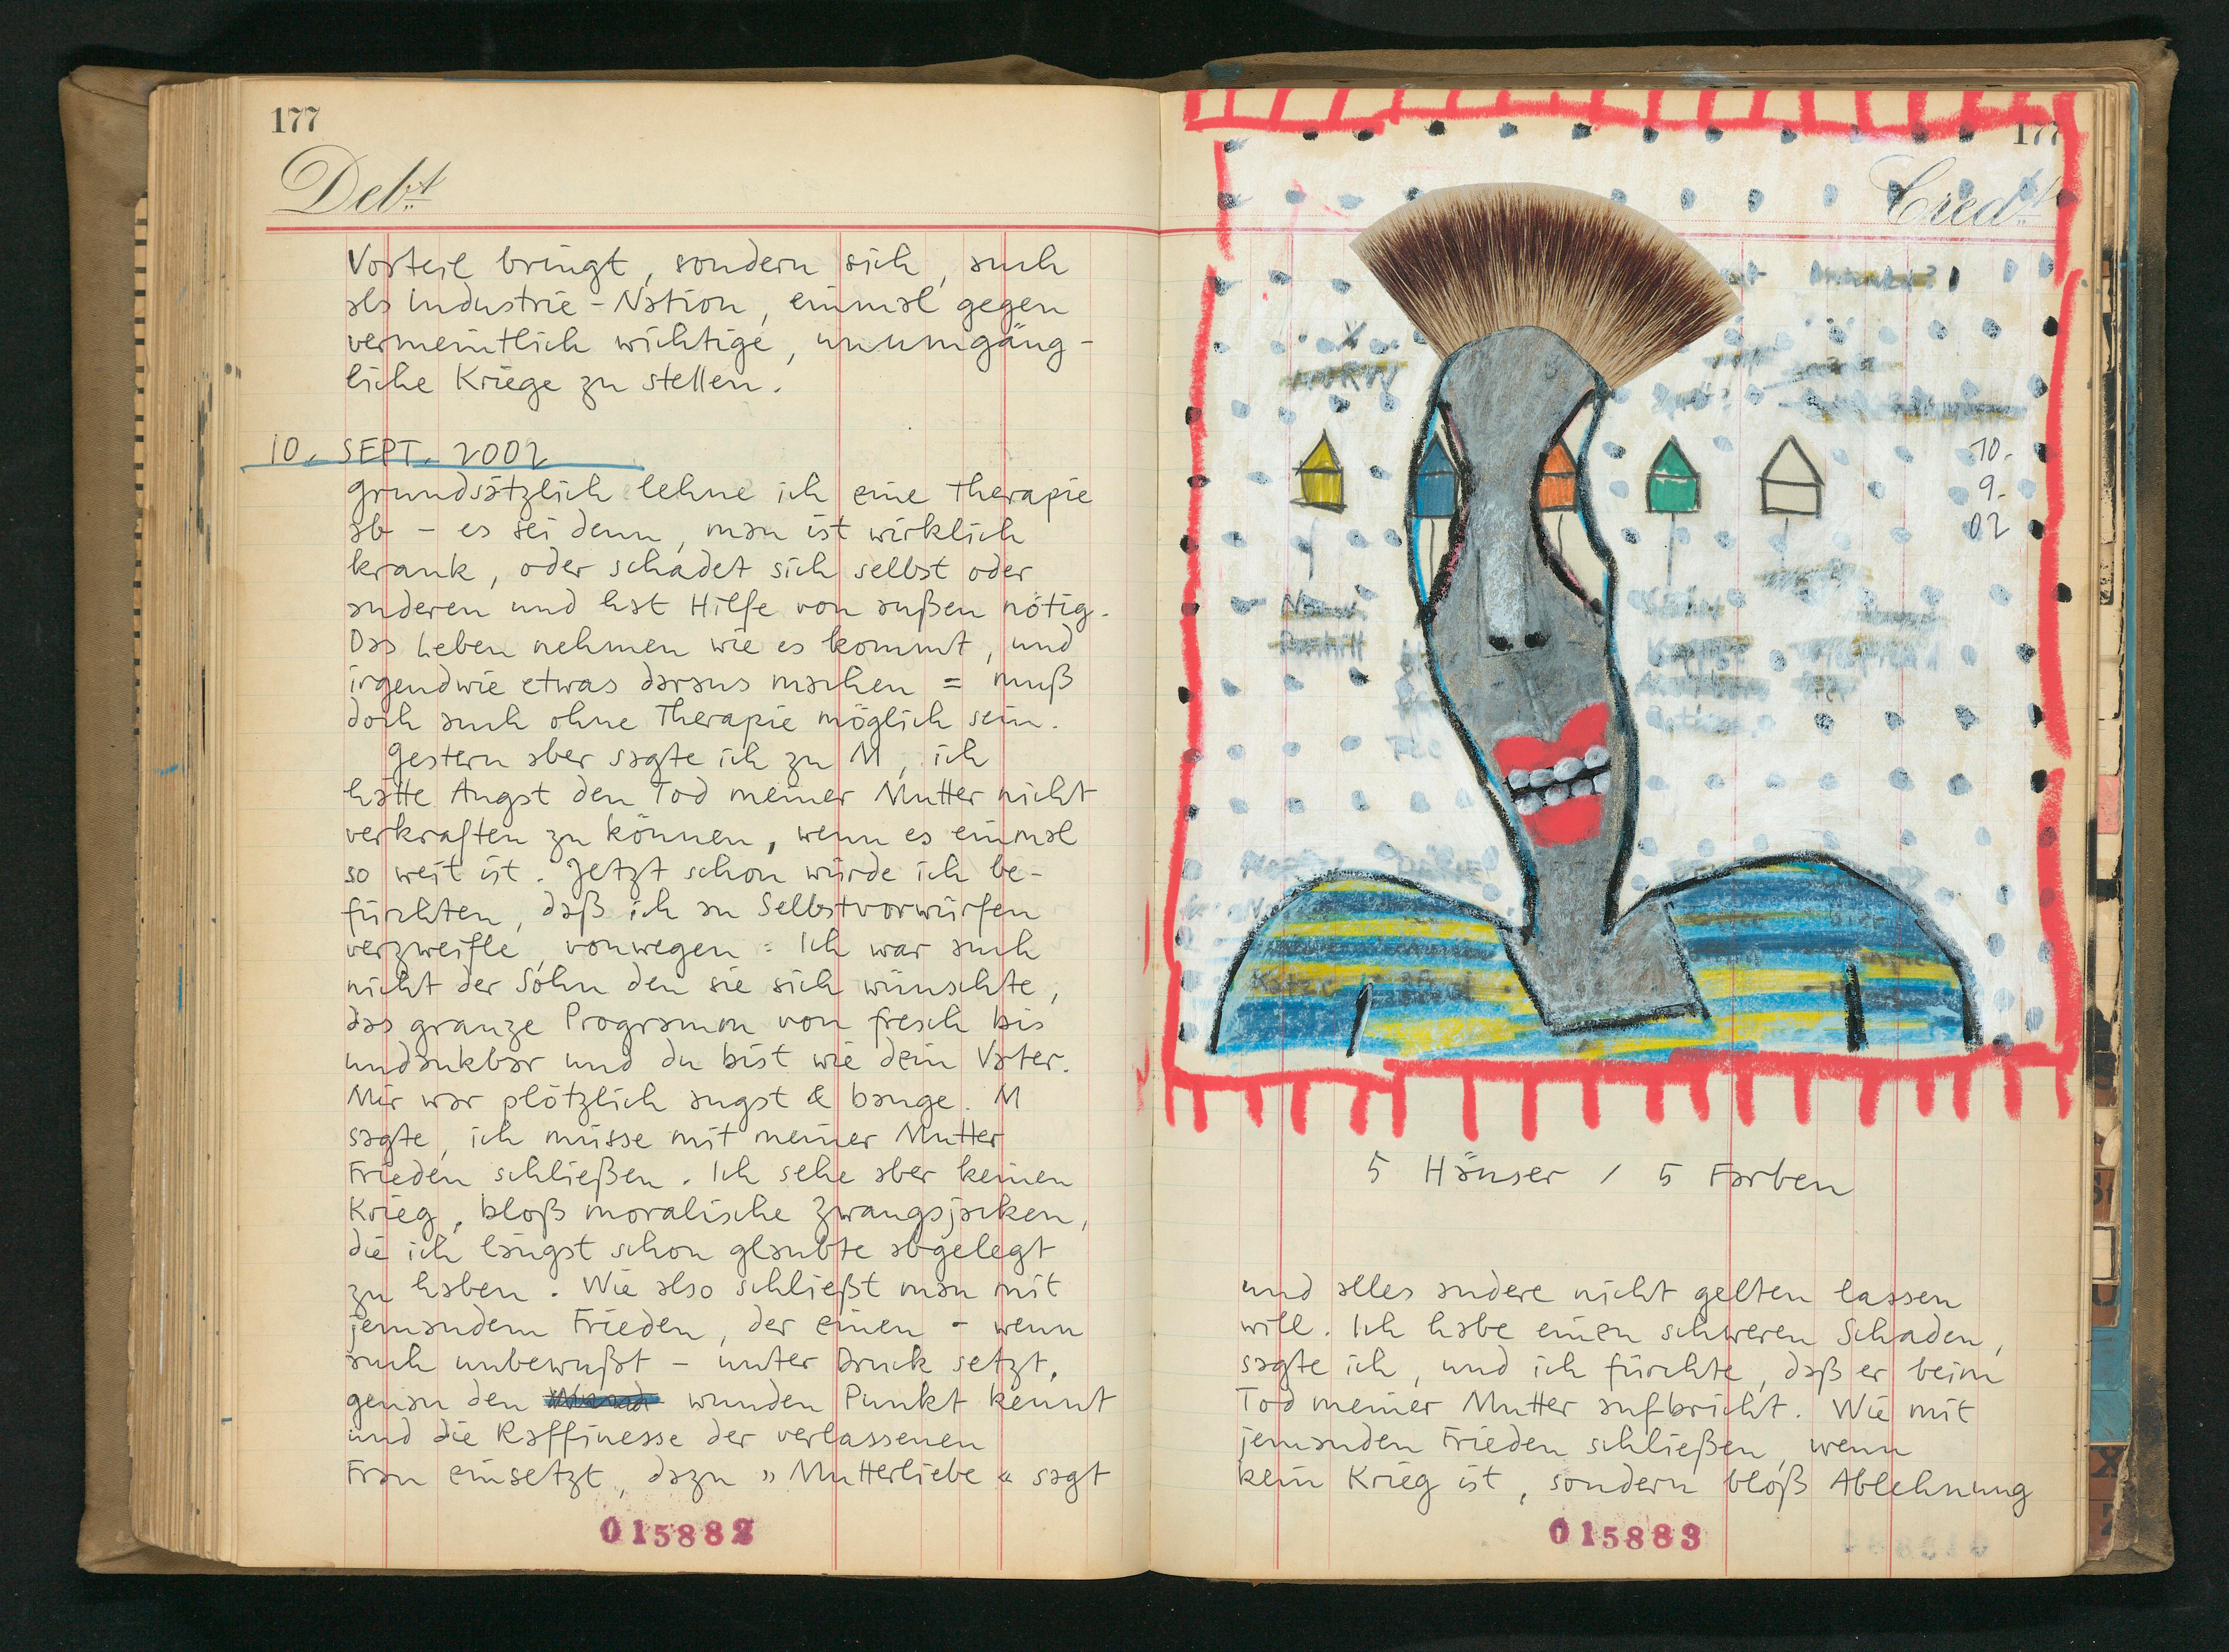 177
Debt
Vorteil bringt, sondern sich, auch
als Industrie-Nation, einmal gegen
vermeintlich wichtige, unumgäng-
liche Kriege zu stellen.
10. SEPT. 2002
Grundsätzlich lehne ich eine Therapie
ab – es sei denn, man ist wirklich
krank, oder schadet sich selbst oder
anderen und hat Hilfe von außen nötig.
Das Leben nehmen wie es kommt, und
irgendwie etwas daraus machen = muß
doch auch ohne Therapie möglich sein.
Gestern aber sagte ich zu M, ich
hätte Angst den Tod meiner Mutter nicht
verkraften zu können, wenn es einmal
so weit ist. Jetzt schon würde ich be-
fürchten, daß ich an Selbstvorwürfen
verzweifle, vonwegen: Ich war auch
nicht der Sohn den sie sich wünschte,
das granze Programm von frech bis
undankbar und du bist wie dein Vater.
Mir war plötzlich angst & bange. M
sagte, ich müsse mit meiner Mutter
Frieden schließen. Ich sehe aber keinen
Krieg, bloß moralische Zwangsjacken,
die ich längst schon glaubte abgelegt
zu haben. Wie also schließt man mit
jemandem Frieden, der einen – wenn
auch unbewußt – unter Druck setzt,
genau den wunden Punkt kennt
und die Raffinesse der verlassenen
Frau einsetzt, dazu »Mutterliebe« sagt
015882
177
Credt
10.
9.
02
5 Häuser / 5 Farben
und alles andere nicht gelten lassen
will. Ich habe einen schweren Schaden,
sagte ich, und ich fürchte, daß er beim
Tod meiner Mutter aufbricht. Wie mit
jemanden Frieden schließen, wenn
kein Krieg ist, sondern bloß Ablehnung
015883